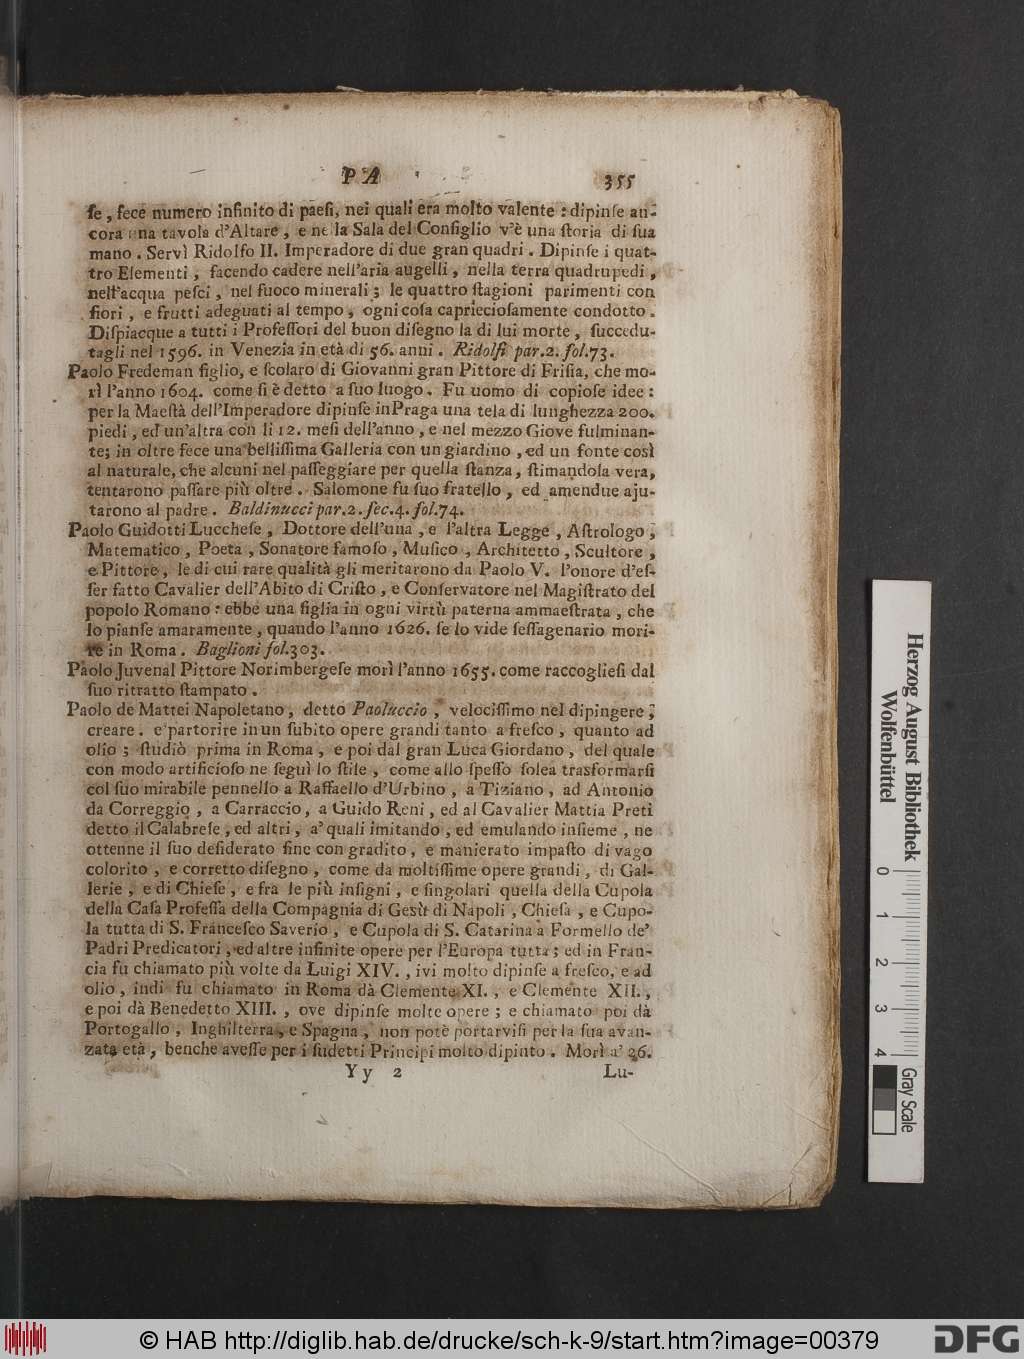 PA
355
ſe, fece numero infinito di paeſi, nei quali era molto valente: dipinſe an-
cora una tavola d'Altare, e ne la Sala del Conſiglio v'è una ſtoria di ſua
mano. Servì Ridolfo II. Imperadore di due gran quadri. Dipinſe i quat-
tro Elementi, facendo cadere nell'aria augelli, nella terra quadrupedi,
nell'acqua peſci, nel fuoco minerali; le quattro ſtagioni parimenti con
fiori, e frutti adeguati al tempo, ogni coſa capriecioſamente condotto.
Diſpiacque a tutti i Profeſſori del buon diſegno la di lui morte, ſuccedu-
tagli nel 1596. in Venezia in età di 56. anni. Ridolfi par.2. fol.73.
Paolo Fredeman figlio, e ſcolaro di Giovanni gran Pittore di Friſia, che mo-
rì l'anno 1604. come ſi è detto a ſuo luogo. Fu uomo di copioſe idee:
per la Maeſtà dell'Imperadore dipinſe in Praga una tela di lunghezza 200.
piedi, ed un'altra con li 12. meſi dell'anno, e nel mezzo Giove fulminan-
te; in oltre fece una belliſſima Galleria con un giardino, ed un fonte così
al naturale, che alcuni nel paſſeggiare per quella ſtanza, ſtimandola vera,
tentarono paſſare più oltre. Salomone fu ſuo fratello, ed amendue aju-
tarono al padre. Baldinucci par.2. ſec.4. fol.74.
Paolo Guidotti Luccheſe, Dottore dell'una, e l'altra Legge, Aſtrologo,
Matematico, Poeta, Sonatore famoſo, Muſico, Architetto, Scultore,
e Pittore, le di cui rare qualità gli meritarono da Paolo V. l'onore d'eſ-
ſer fatto Cavalier dell'Abito di Criſto, e Conſervatore nel Magiſtrato del
popolo Romano: ebbe una figlia in ogni virtù paterna ammaeſtrata, che
lo pianſe amaramente, quando l'anno 1626. ſe lo vide ſeſſagenario mori-
re in Roma. Baglioni fol.303.
Paolo Juvenal Pittore Norimbergeſe morì l'anno 1655. come raccoglieſi dal
ſuo ritratto ſtampato.
Paolo de Mattei Napoletano, detto Paoluccio, velociſſimo nel dipingere,
creare. e partorire in un ſubito opere grandi tanto a freſco, quanto ad
olio; ſtudiò prima in Roma, e poi dal gran Luca Giordano, del quale
con modo artificioſo ne ſeguì lo ſtile, come allo ſpeſſo ſolea trasformarſi
col ſuo mirabile pennello a Raffaello d'Urbino, a Tiziano, ad Antonio
da Correggio, a Carraccio, a Guido Reni, ed al Cavalier Mattia Preti
detto il Calabreſe, ed altri, a' quali imitando, ed emulando inſieme, ne
ottenne il ſuo deſiderato fine con gradito, e manierato impaſto di vago
colorito, e corretto diſegno, come da moltiſſime opere grandi, di Gal-
lerie, e di Chieſe, e fra le più inſigni, e ſingolari quella della Cupola
della Caſa Profeſſa della Compagnia di Gesù di Napoli, Chieſa, e Cupo-
la tutta di S. Franceſco Saverio, e Cupola di S. Catarina a Formello de'
Padri Predicatori, ed altre infinite opere per l'Europa tutta; ed in Fran-
cia fu chiamato più volte da Luigi XIV., ivi molto dipinſe a freſco, e ad
olio, indi fu chiamato in Roma dà Clemente XI., e Clemente XII.,
e poi dà Benedetto XIII., ove dipinſe molte opere; e chiamato poi dà
Portogallo, Inghilterra, e Spagna, non potè portarviſi per la ſua avan-
zata età, benche aveſſe per i ſudetti Principi molto dipinto. Morì a' 26.
Yy 2
Lu-
Herzog August Bibliothek
Wolfenbüttel
0
1
2
3
4
Gray Scale
© HAB http://diglib.hab.de/drucke/sch-k-9/start.htm?image=00379
DFG